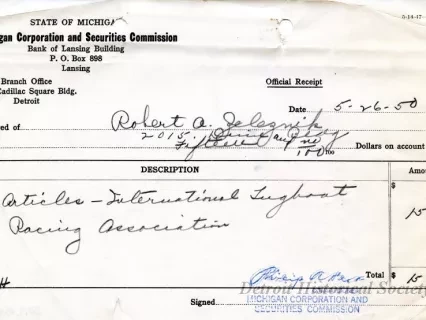 STATE OF MICHIGA
5-14-47
gan Corporation and Securities Commission
Bank of Lansing Building
P. O. Box 898
Lansing
Branch Office
Cadillac Square Bldg.
Detroit
Official Receipt
Date 5-26-50
ed of Robert A.
2015
Fifteen and no/100 Dollars on account
DESCRIPTION Amo
Articles - International Tugboat $ 15
Racing Association
Total $ 15
Detroit Historical Society
Signed
MICHIGAN CORPORATION AND
SECURITIES COMMISSION